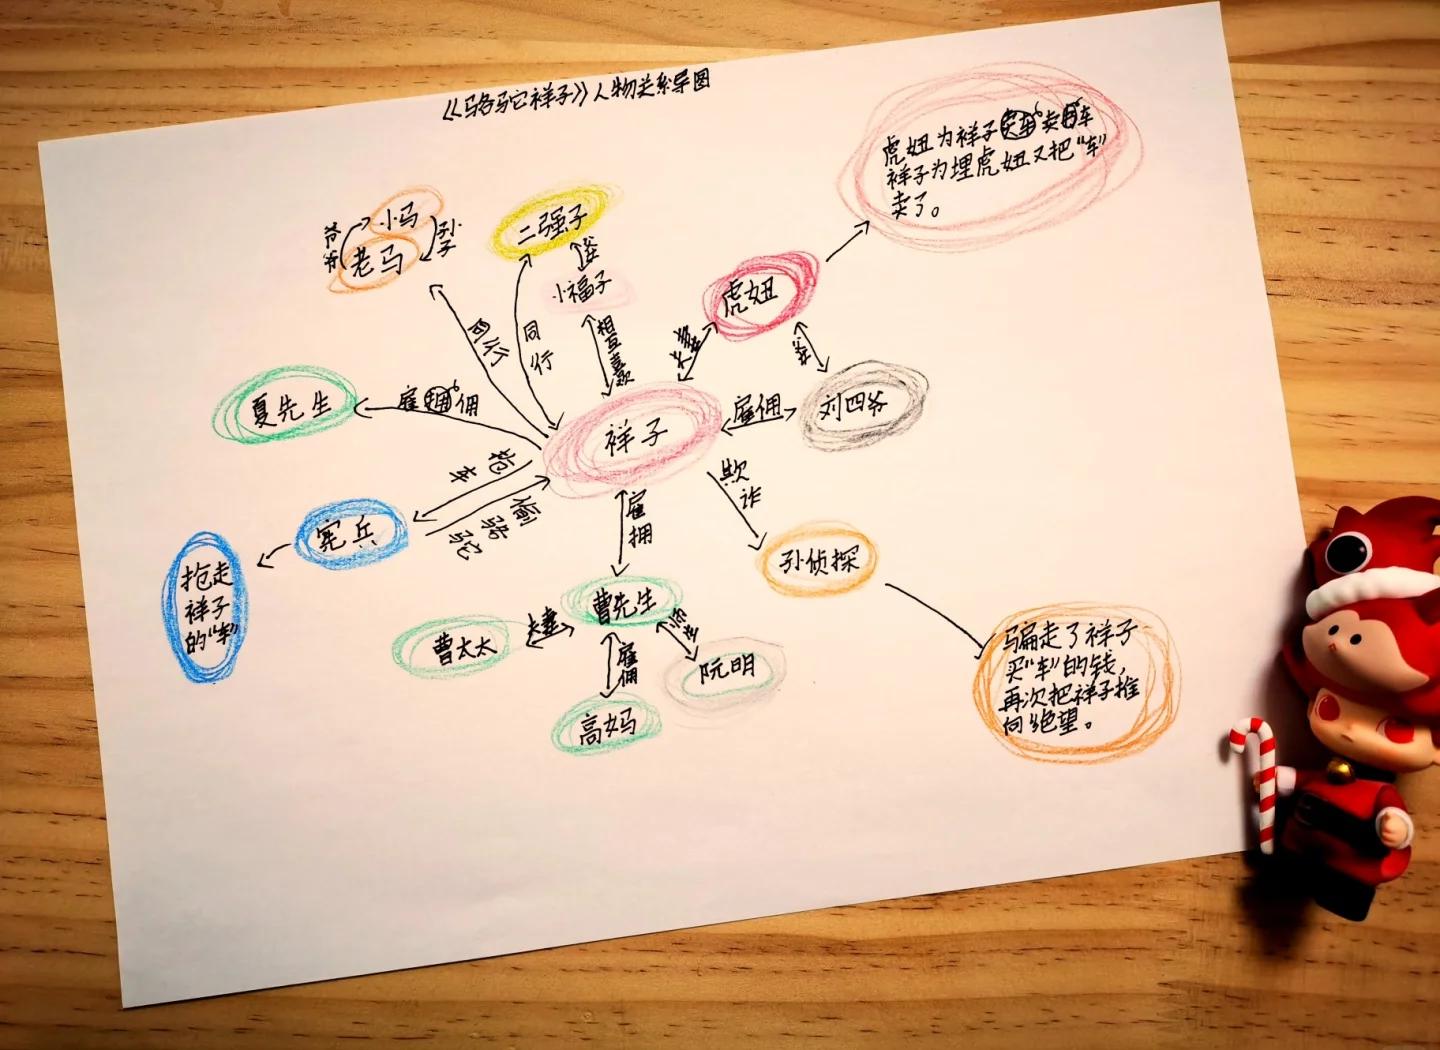 《骆驼祥子》人物关系导图
虎妞为祥子卖车
祥子为埋虎妞又把“车”
卖了。
小马
老马
爷爷
孙子
二强子
小福子
虎妞
同行
同行
相互喜欢
夫妻
夏先生
雇佣
祥子
雇佣
刘四爷
抢车
偷骆驼
欺诈
宪兵
雇拥
孙侦探
抢走
祥子
的“车”
曹先生
曹太太
夫妻
雇佣
阮明
高妈
骗走了祥子
买“车”的钱，
再次把祥子推
向绝望。